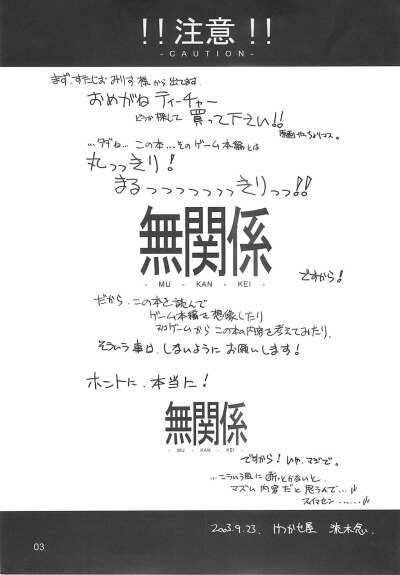 !! 注意 !!
- CAUTION -
まず、すたじおみりす様から出てます
おめがねティーチャー
どうか探して買って下さい!!
…タダね…この本…そのゲーム本編とは
丸っっきり!
まるっっっっっっっきりっっ!!
無関係
- MU - KAN - KEI -
ですから!
だから、この本を読んで
ゲーム本編を想像したり
ゲームからこの本の内容を考えてみたり、
そういう事は、しないようにお願いします!
ホントに、本当に!
無関係
- MU - KAN - KEI -
ですから! いや、マジで。
…こういう風に断っとかないと
マズい内容だと思うんで…
スイマセン……
2003.9.23. けつかせ屋
03